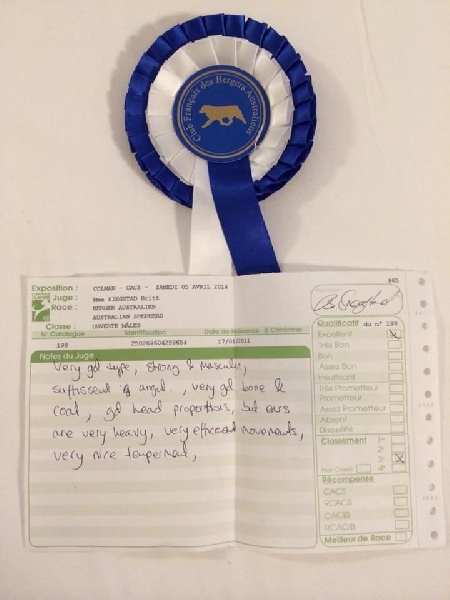 Club Français des Bergers Australiens
965
Exposition : COLMAR - CACS - SAMEDI 05 AVRIL 2014
Juge : Mme SIEGSTAD Britt
Race : BERGER AUSTRALIEN
AUSTRALIAN SHEPHERD
Classe : OUVERTE MÂLES
N° Catalogue Identification Date de Naissance A Confirmer
198 250269604259654 17/01/2011
Notes du Juge
Very gd type, strong & masculin,
suffissent of angul, very gd bone &
coat, gd head proportions, but ears
are very heavy, very efficient movements,
very nice temperment,
Qualificatif du n° 198
Excellent
Très Bon
Bon
Assez Bon
Insuffisant
Très Prometteur
Prometteur
Assez Prometteur
Absent
Disqualifié
Classement
Non Classé
Récompense
CACS
RCACS
CACIB
RCACIB
Meilleur de Race